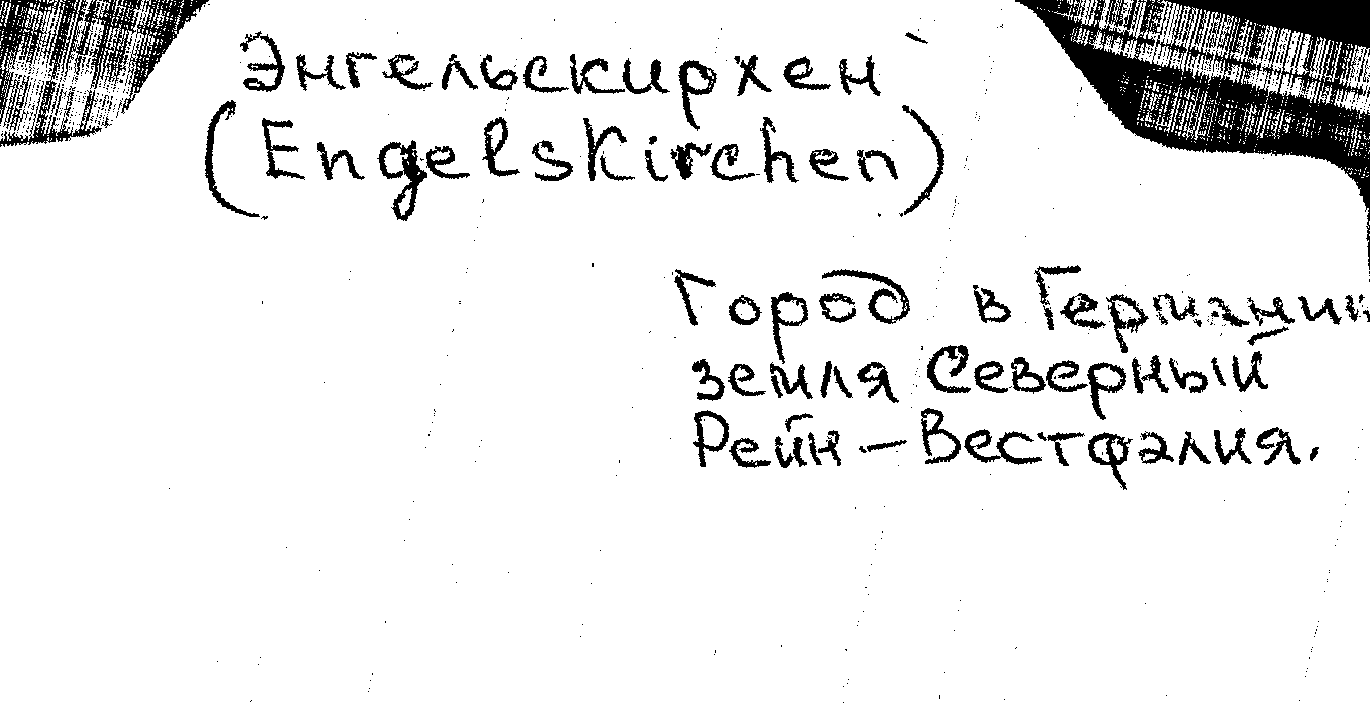 Энгельскирхен
(Engelskirchen)
Город в Германии
земля Северный
Рейн – Вестфалия.